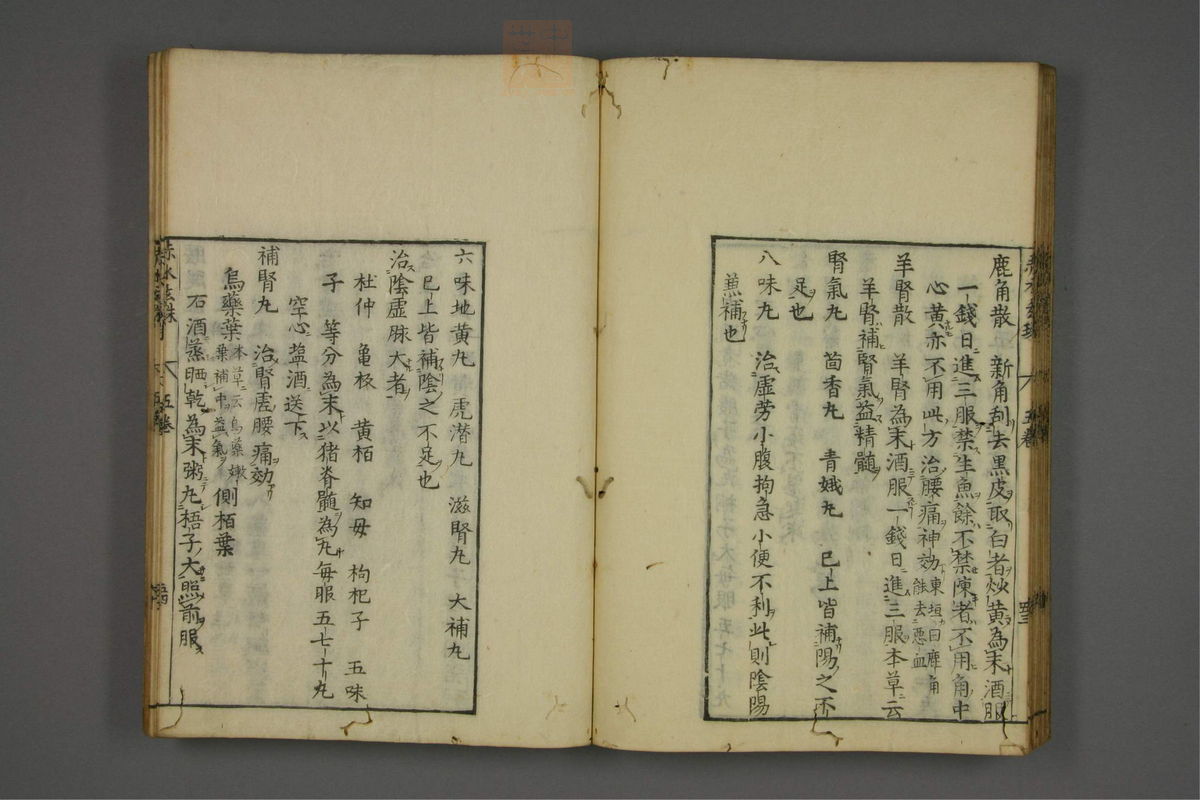 鹿角散 新角刮去黒皮取白者炒黄為末酒服
一錢日進三服禁生魚餘不禁陳者不用角中
心黄亦不用此方治腰痛神効東垣曰鹿角能去惡血
羊腎散 羊腎為末酒服一錢日進三服本草云
羊腎補腎氣益精髓
腎氣丸 茴香丸 青娥丸 已上皆補陽之不
足也
八味丸 治虚労小腹拘急小便不利此則陰陽
兼補也
六味地黄丸 虎潜丸 滋腎丸 大補丸
已上皆補陰之不足也
治陰虚脉大者
杜仲 亀板 黄栢 知母 枸杞子 五味
子 等分為末以猪脊髓為丸毎服五七十丸
空心盐酒送下
補腎丸 治腎虚腰痛効
烏藥葉本草云烏藥嫩葉補中益氣 側栢葉
石酒蒸晒乾為末粥丸梧子大照前服